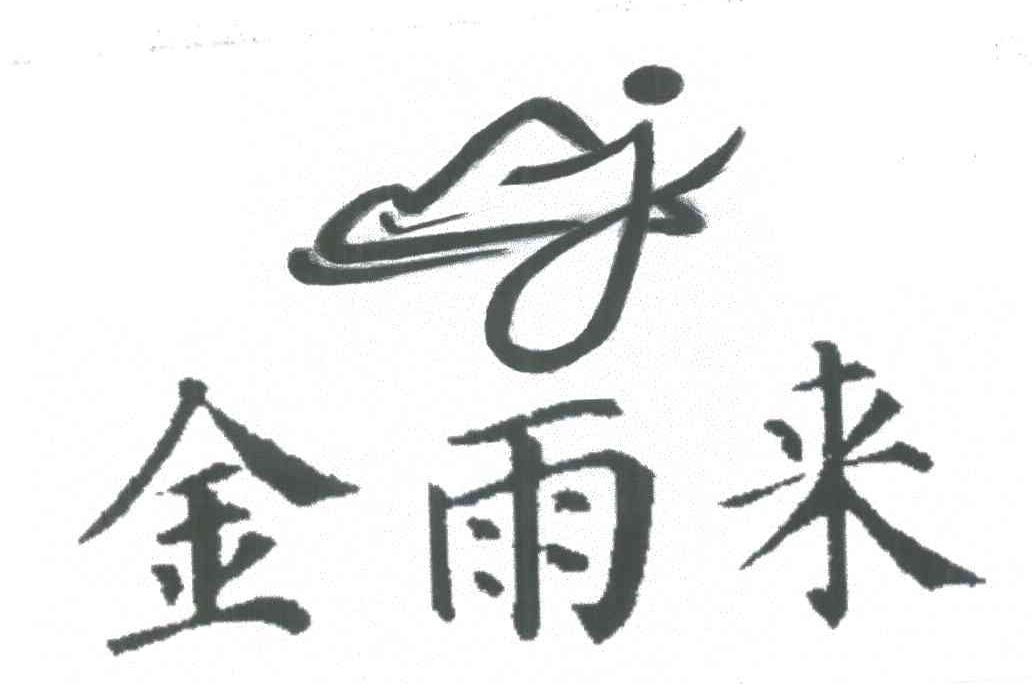 j
金雨来